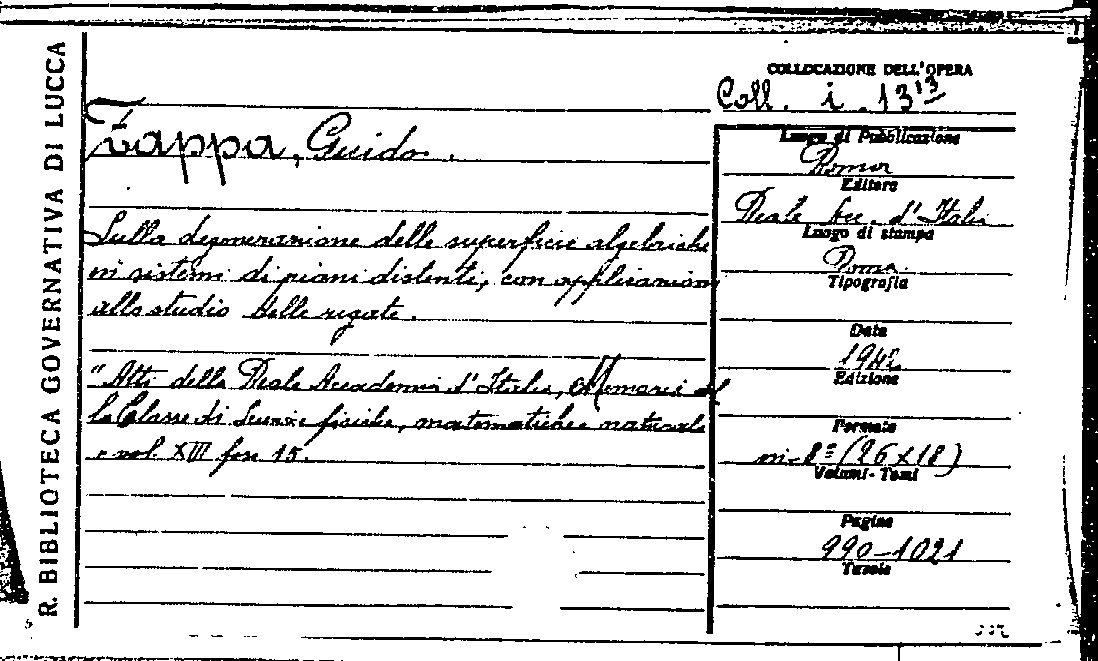 R. BIBLIOTECA GOVERNATIVA DI LUCCA
COLLOCAZIONE DELL'OPERA
Coll. i. 13¹³
Zappa, Guido.
Sulla degenerazione delle superficie algebriche
in sistemi di piani distinti, con applicazioni
allo studio delle rigate.
"Atti della Reale Accademia d'Italia, Memorie del
la Classe di Scienze fisiche, matematiche e naturale
" vol. XIII fasc 15.
Luogo di Pubblicazione
Roma
Editore
Reale Acc. d'Italia
Luogo di stampa
Roma
Tipografia
Data
1942
Edizione
Formato
in-8º (26x18)
Volumi - Tomi
Pagine
990-1021
Tavole